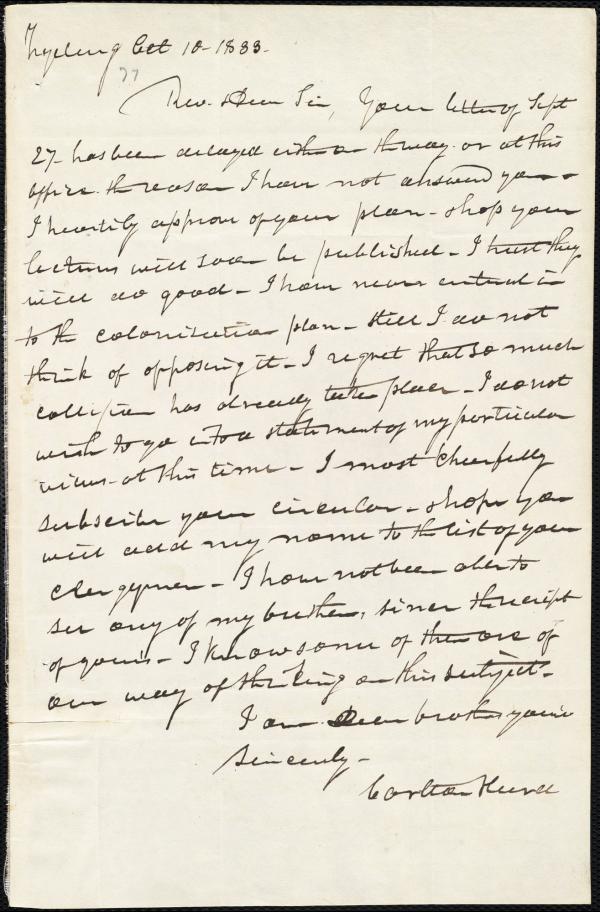 Fryeburg Oct 10- 1833-
77
Rev. & Dear Sir, Your letter of Sept
27- has been delayed either on the way or at this
office the reason I have not answered you-
I heartily approve of your plan- & hope your
lectures will soon be published- I trust they
will do good- I have never entered in
to the colonization plan- still I do not
think of opposing it- I regret that so much
collision has already taken place- I do not
wish to go into a statement of my particular
views- at this time- I most cheerfully
subscribe your circular- & hope you
will add my name to the list of your
clergymen- I have not been able to
see any of my brethren, since the receipt
of yours- I know some of them are of
our way of thinking on this subject-
I am Dear brother yours
Sincerely-
Carlton Hurd